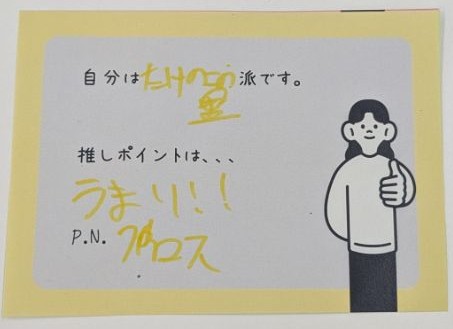 自分はたけのこ派です。
推しポイントは、、、
うまい!!
P.N. ロス